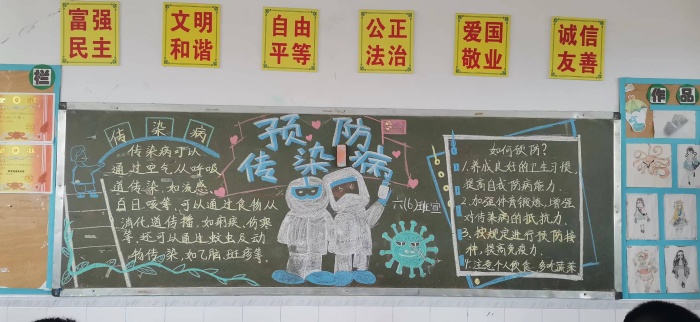 富强
民主
文明
和谐
自由
平等
公正
法治
爱国
敬业
诚信
友善
栏
作品
传染病
传染病可以
通过空气从呼吸
道传染，如流感
百日咳等，可以通过食物从
消化道传播，如痢疾、伤寒
等，还可以通过蚊虫及动
物传染，如乙脑、斑疹等。
预防
传染病
六(6)班宣
如何预防？
1.养成良好的卫生习惯，
提高自我防病能力。
2.加强体育锻炼，增强
对传染病的抵抗力。
3.按规定进行预防接
种，提高免疫力。
4.注意个人饮食，多吃蔬菜